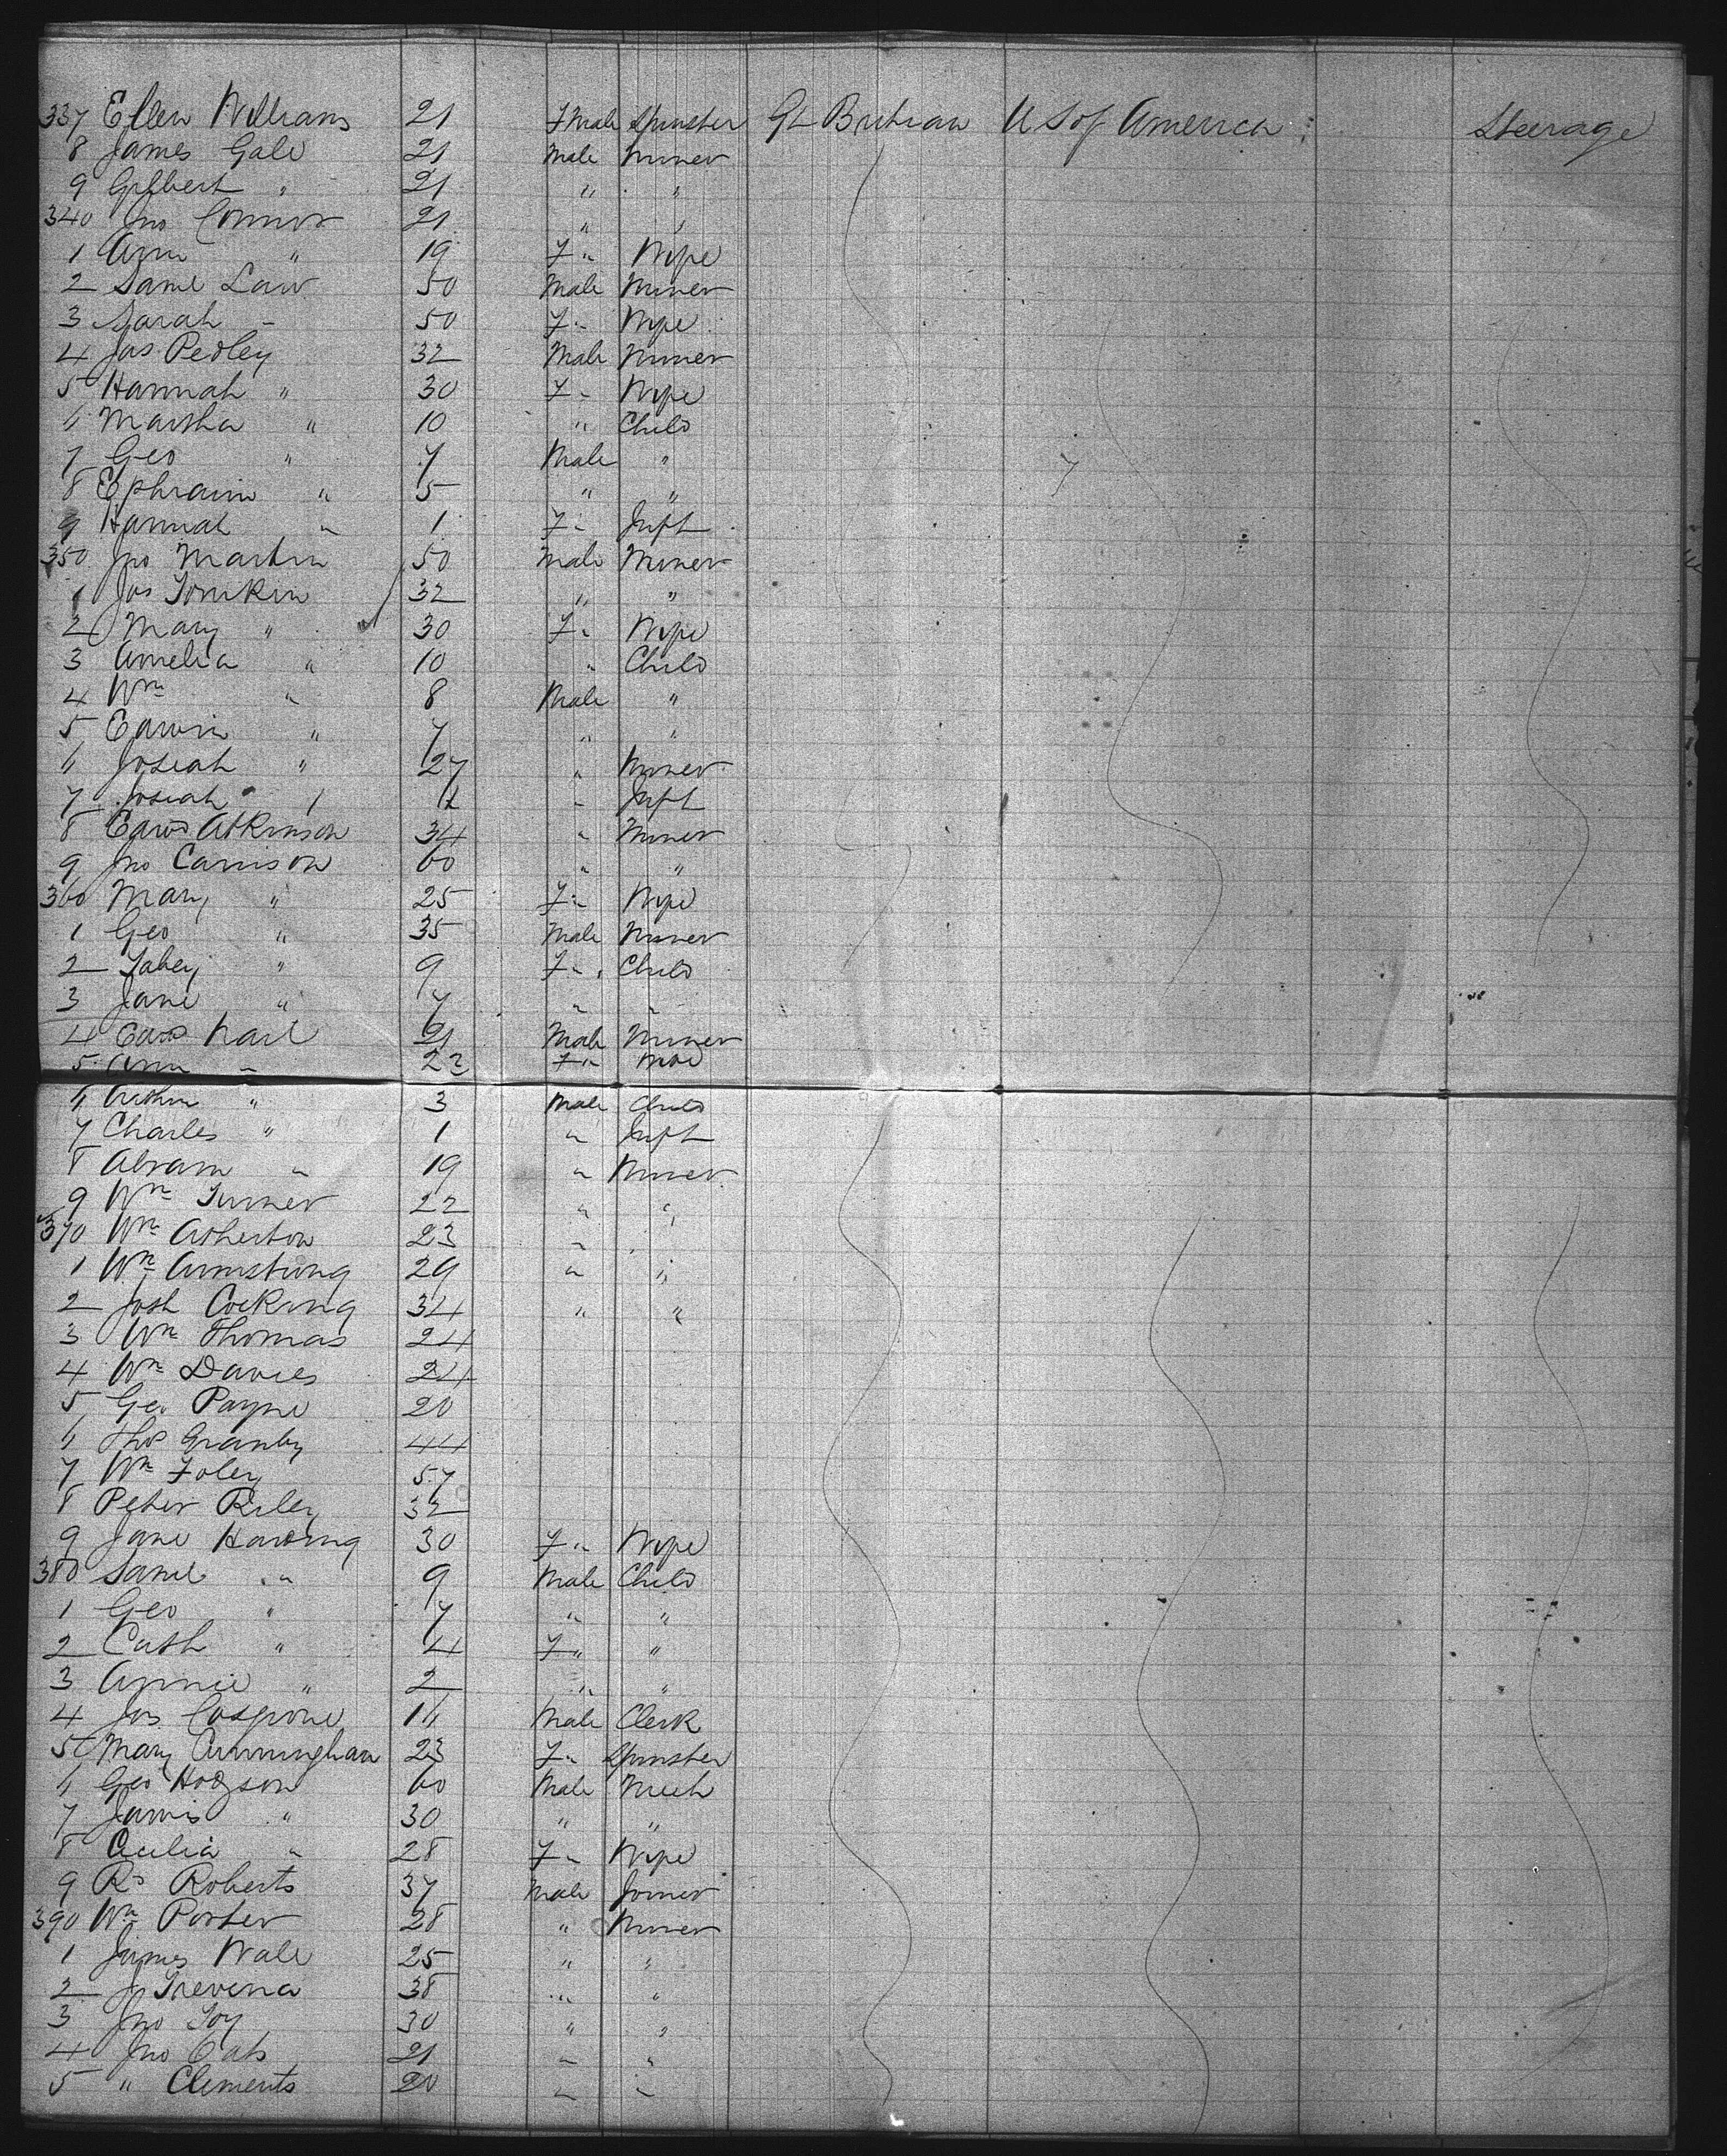 337 Ellen Williams 21 Fmale Spinster Gt Britian U S of America Steerage
8 James Gale 21 Male Miner
9 Gilbert " 21 " "
340 Jno Connor 21 " "
1 Ann " 19 F " Wife
2 Saml Law 50 Male Miner
3 Sarah " 50 F " Wife
4 Jas Pedley 32 Male Miner
5 Hannah " 30 F " Wife
6 Martha " 10 " Child
7 Geo " 7 Male "
8 Ephraim " 5 " "
9 Hannah " 1 F " Inft
350 Jno Martin 50 Male Miner
1 Jos Tomkin 32 " "
2 Mary " 30 F " Wife
3 Amelia " 10 " Child
4 Wm " 8 Male "
5 Edwin " 7 " "
6 Josiah " 27 " Miner
7 Josiah " 1 " Inft
8 Edwd Atkinson 34 " Miner
9 Jno Carrison 60 " "
360 Mary " 25 F " Wife
1 Geo " 35 Male Miner
2 " 9 F " Child
3 Jane " 7 " "
4 Edwd Nail 21 Male Miner
5 Ann " 22 F " Wife
6 Arthur " 3 Male Child
7 Charles " 1 " Inft
8 Abram " 19 " Miner
9 Wm Turner 22 " "
370 Wm Atherton 23 " "
1 Wm Armstrong 29 " "
2 Josh Cocking 34 " "
3 Wm Thomas 24
4 Wm Davies 24
5 Geo Payne 20
6 Thos Granby 44
7 Wm Foley 57
8 Peter Riley 32
9 Jane Harding 30 F " Wife
380 Saml " 9 Male Child
1 Geo " 7 " "
2 Cath " 4 F " "
3 Annie " 2 " "
4 Jas Cosgrove 16 Male Clerk
5 Mary Cunningham 23 F " Spinster
6 Geo Hodgson 60 Male Mech
7 James " 30 " "
8 Cecilia " 28 F " Wife
9 Rd Roberts 37 Male Joiner
390 Wm Porter 28 " Miner
1 James Wale 25 " "
2 J Trevena 38 " "
3 Jno Toy 30 " "
4 Jno Oats 21 " "
5 " Clements 20 " "